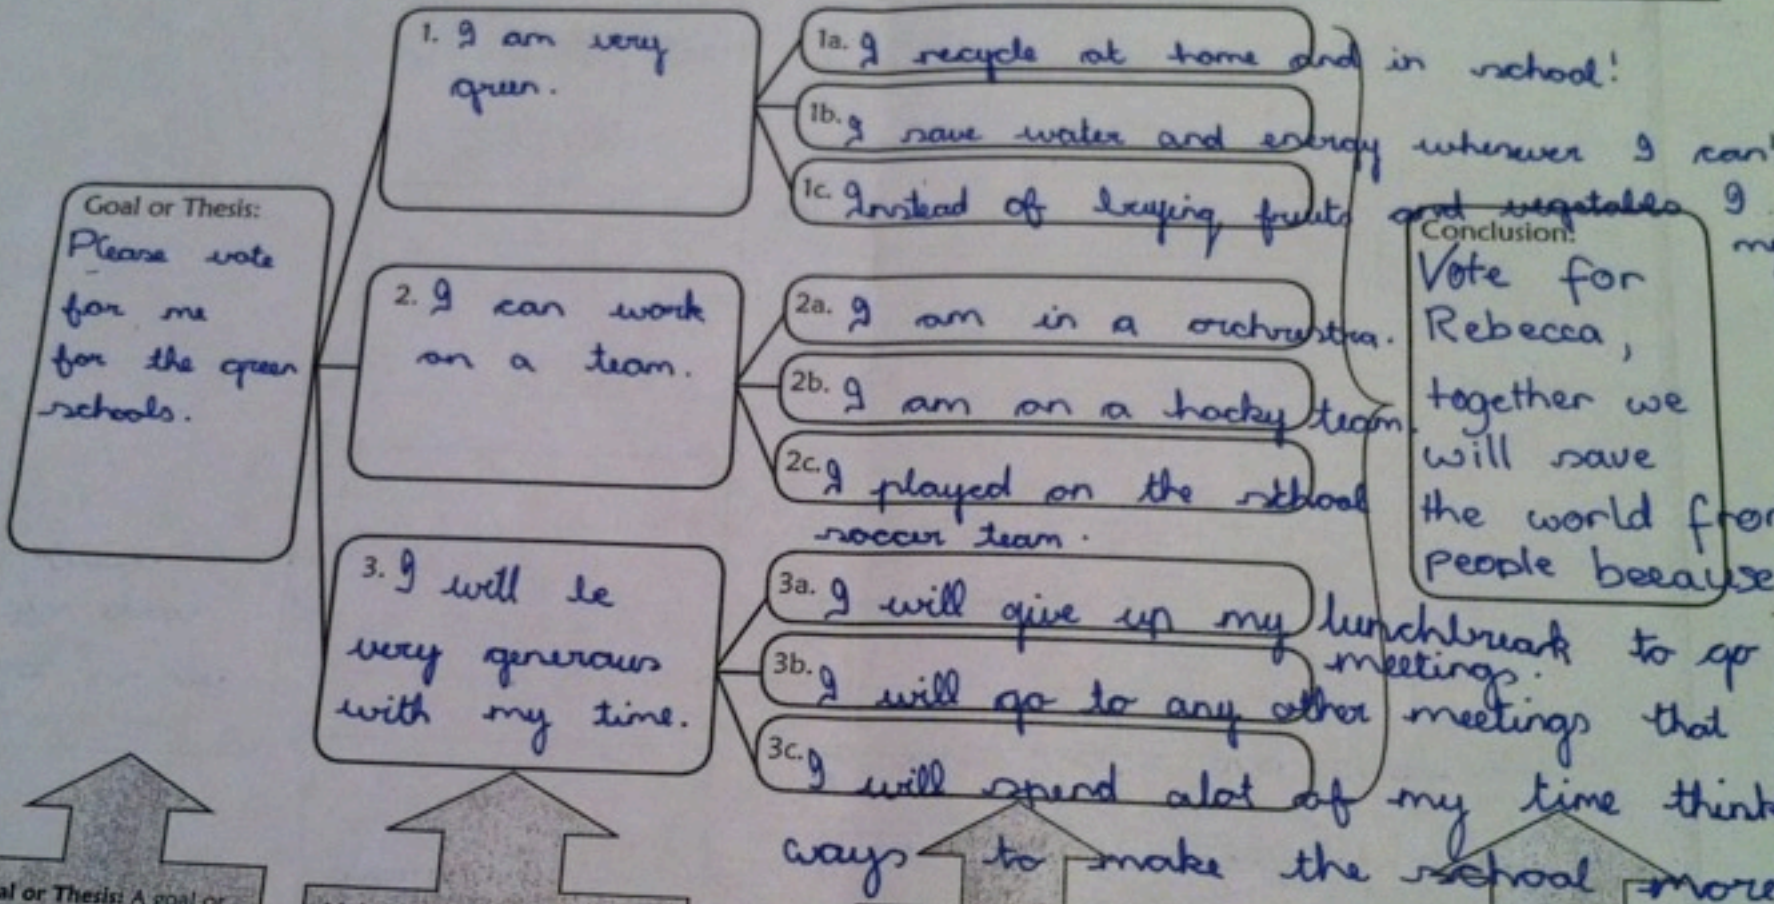 Goal or Thesis:
Please vote
for me
for the green
schools.
1. I am very
green.
1a. I recycle at home and in school!
1b. I save water and energy whenever I can
1c. Instead of buying fruits and vegetables I
2. I can work
on a team.
2a. I am in a orchrestra.
2b. I am on a hocky team.
2c. I played on the school
soccer team.
3. I will be
very generous
with my time.
3a. I will give up my lunchbreak to go
meetings.
3b. I will go to any other meetings that
3c. I will spend alot of my time think
ways to make the school more
Conclusion:
Vote for
Rebecca,
together we
will save
the world from
people beeause
al or Thesis: A goal or